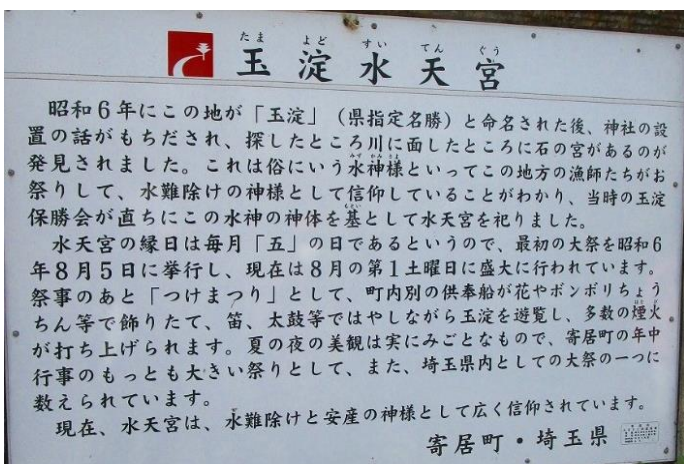 たま よど すい てん ぐう
玉淀水天宮
昭和6年にこの地が「玉淀」（県指定名勝）と命名された後、神社の設
置の話がもちだされ、探したところ川に面したところに石の宮があるのが
発見されました。これは俗にいう水神様といってこの地方の漁師たちがお
祭りして、水難除けの神様として信仰していることがわかり、当時の玉淀
保勝会が直ちにこの水神の神体を基として水天宮を祀りました。
水天宮の縁日は毎月「五」の日であるというので、最初の大祭を昭和6
年8月5日に挙行し、現在は8月の第1土曜日に盛大に行われています。
祭事のあと「つけまつり」として、町内別の供奉船が花やボンボリちょう
ちん等で飾りたて、笛、太鼓等ではやしながら玉淀を遊覧し、多数の煙火
が打ち上げられます。夏の夜の美観は実にみごとなもので、寄居町の年中
行事のもっとも大きい祭りとして、また、埼玉県内としての大祭の一つに
数えられています。
現在、水天宮は、水難除けと安産の神様として広く信仰されています。
寄居町・埼玉県